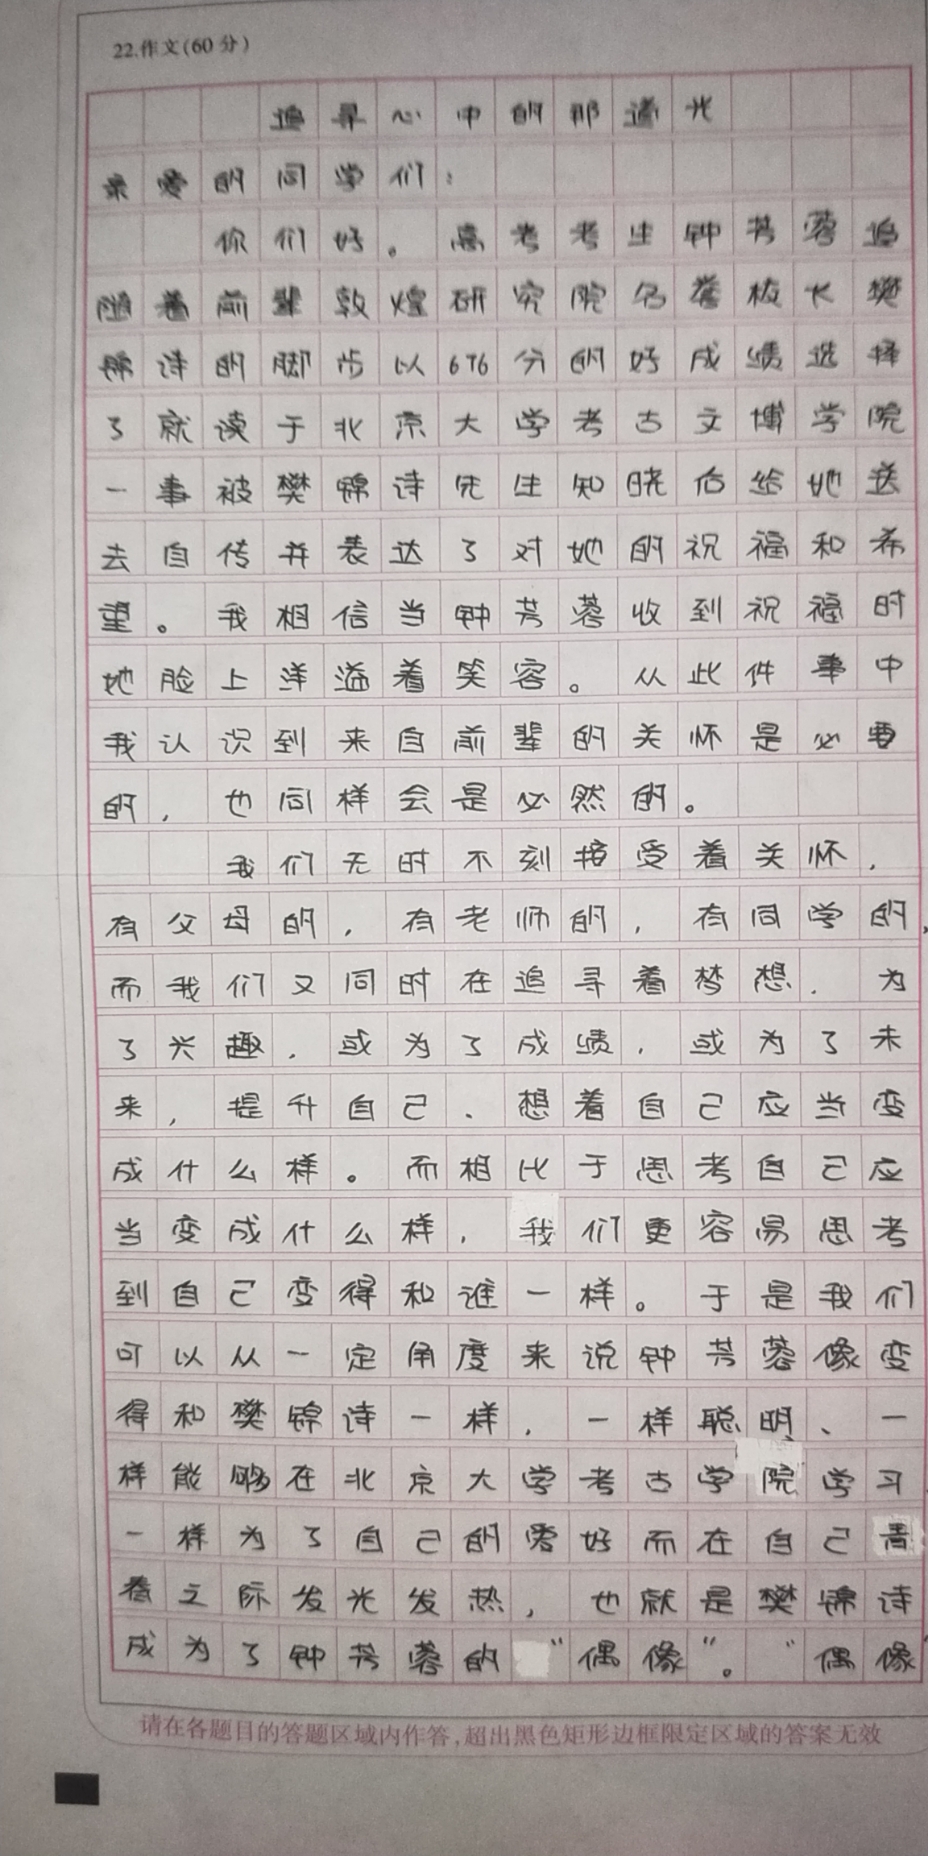 22.作文(60分)
追寻心中的那道光
亲爱的同学们：
你们好。高考考生钟芳蓉追
随着前辈敦煌研究院名誉校长樊
锦诗的脚步以676分的好成绩选择
了就读于北京大学考古文博学院
一事被樊锦诗先生知晓后给她送
去自传并表达了对她的祝福和希
望。我相信当钟芳蓉收到祝福时
她脸上洋溢着笑容。从此件事中
我认识到来自前辈的关怀是必要
的，也同样会是必然的。
我们无时不刻接受着关怀，
有父母的，有老师的，有同学的，
而我们又同时在追寻着梦想，为
了兴趣，或为了成绩，或为了未
来，提升自己、想着自己应当变
成什么样。而相比于思考自己应
当变成什么样，我们更容易思考
到自己变得和谁一样。于是我们
可以从一定角度来说钟芳蓉像变
得和樊锦诗一样，一样聪明、一
样能够在北京大学考古学院学习、
一样为了自己的爱好而在自己青
春之际发光发热，也就是樊锦诗
成为了钟芳蓉的“偶像”。“偶像”
请在各题目的答题区域内作答,超出黑色矩形边框限定区域的答案无效